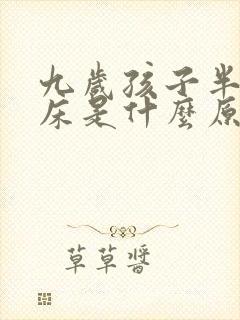 九歲孩子半
床是什麼原
草草醬